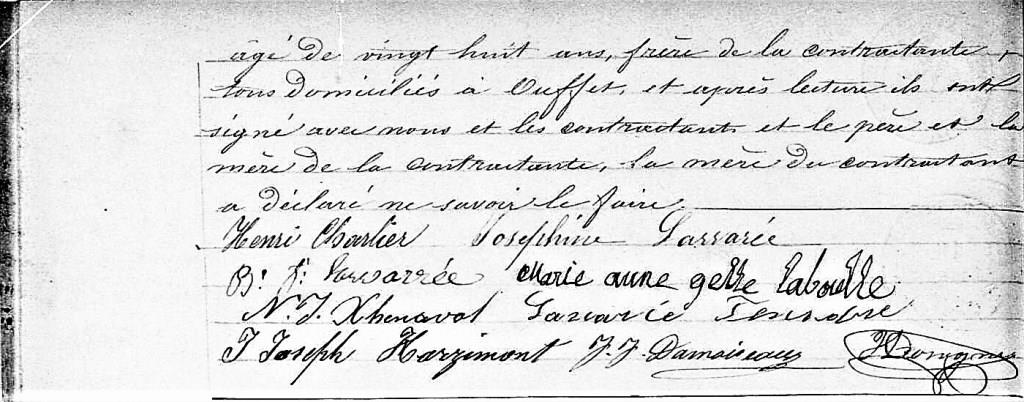 âgé de vingt huit ans, frère de la contractante,
tous domiciliés à Ouffet, et après lecture ils ont
signé avec nous et les contractants et le père et la
mère de la contractante, la mère du contractant
a déclaré ne savoir le faire.
Henri Charlier Josephine Lassarée
Marie anne
N. J. Xhenaval
J Joseph Harzimont J. J. Damoiseaux